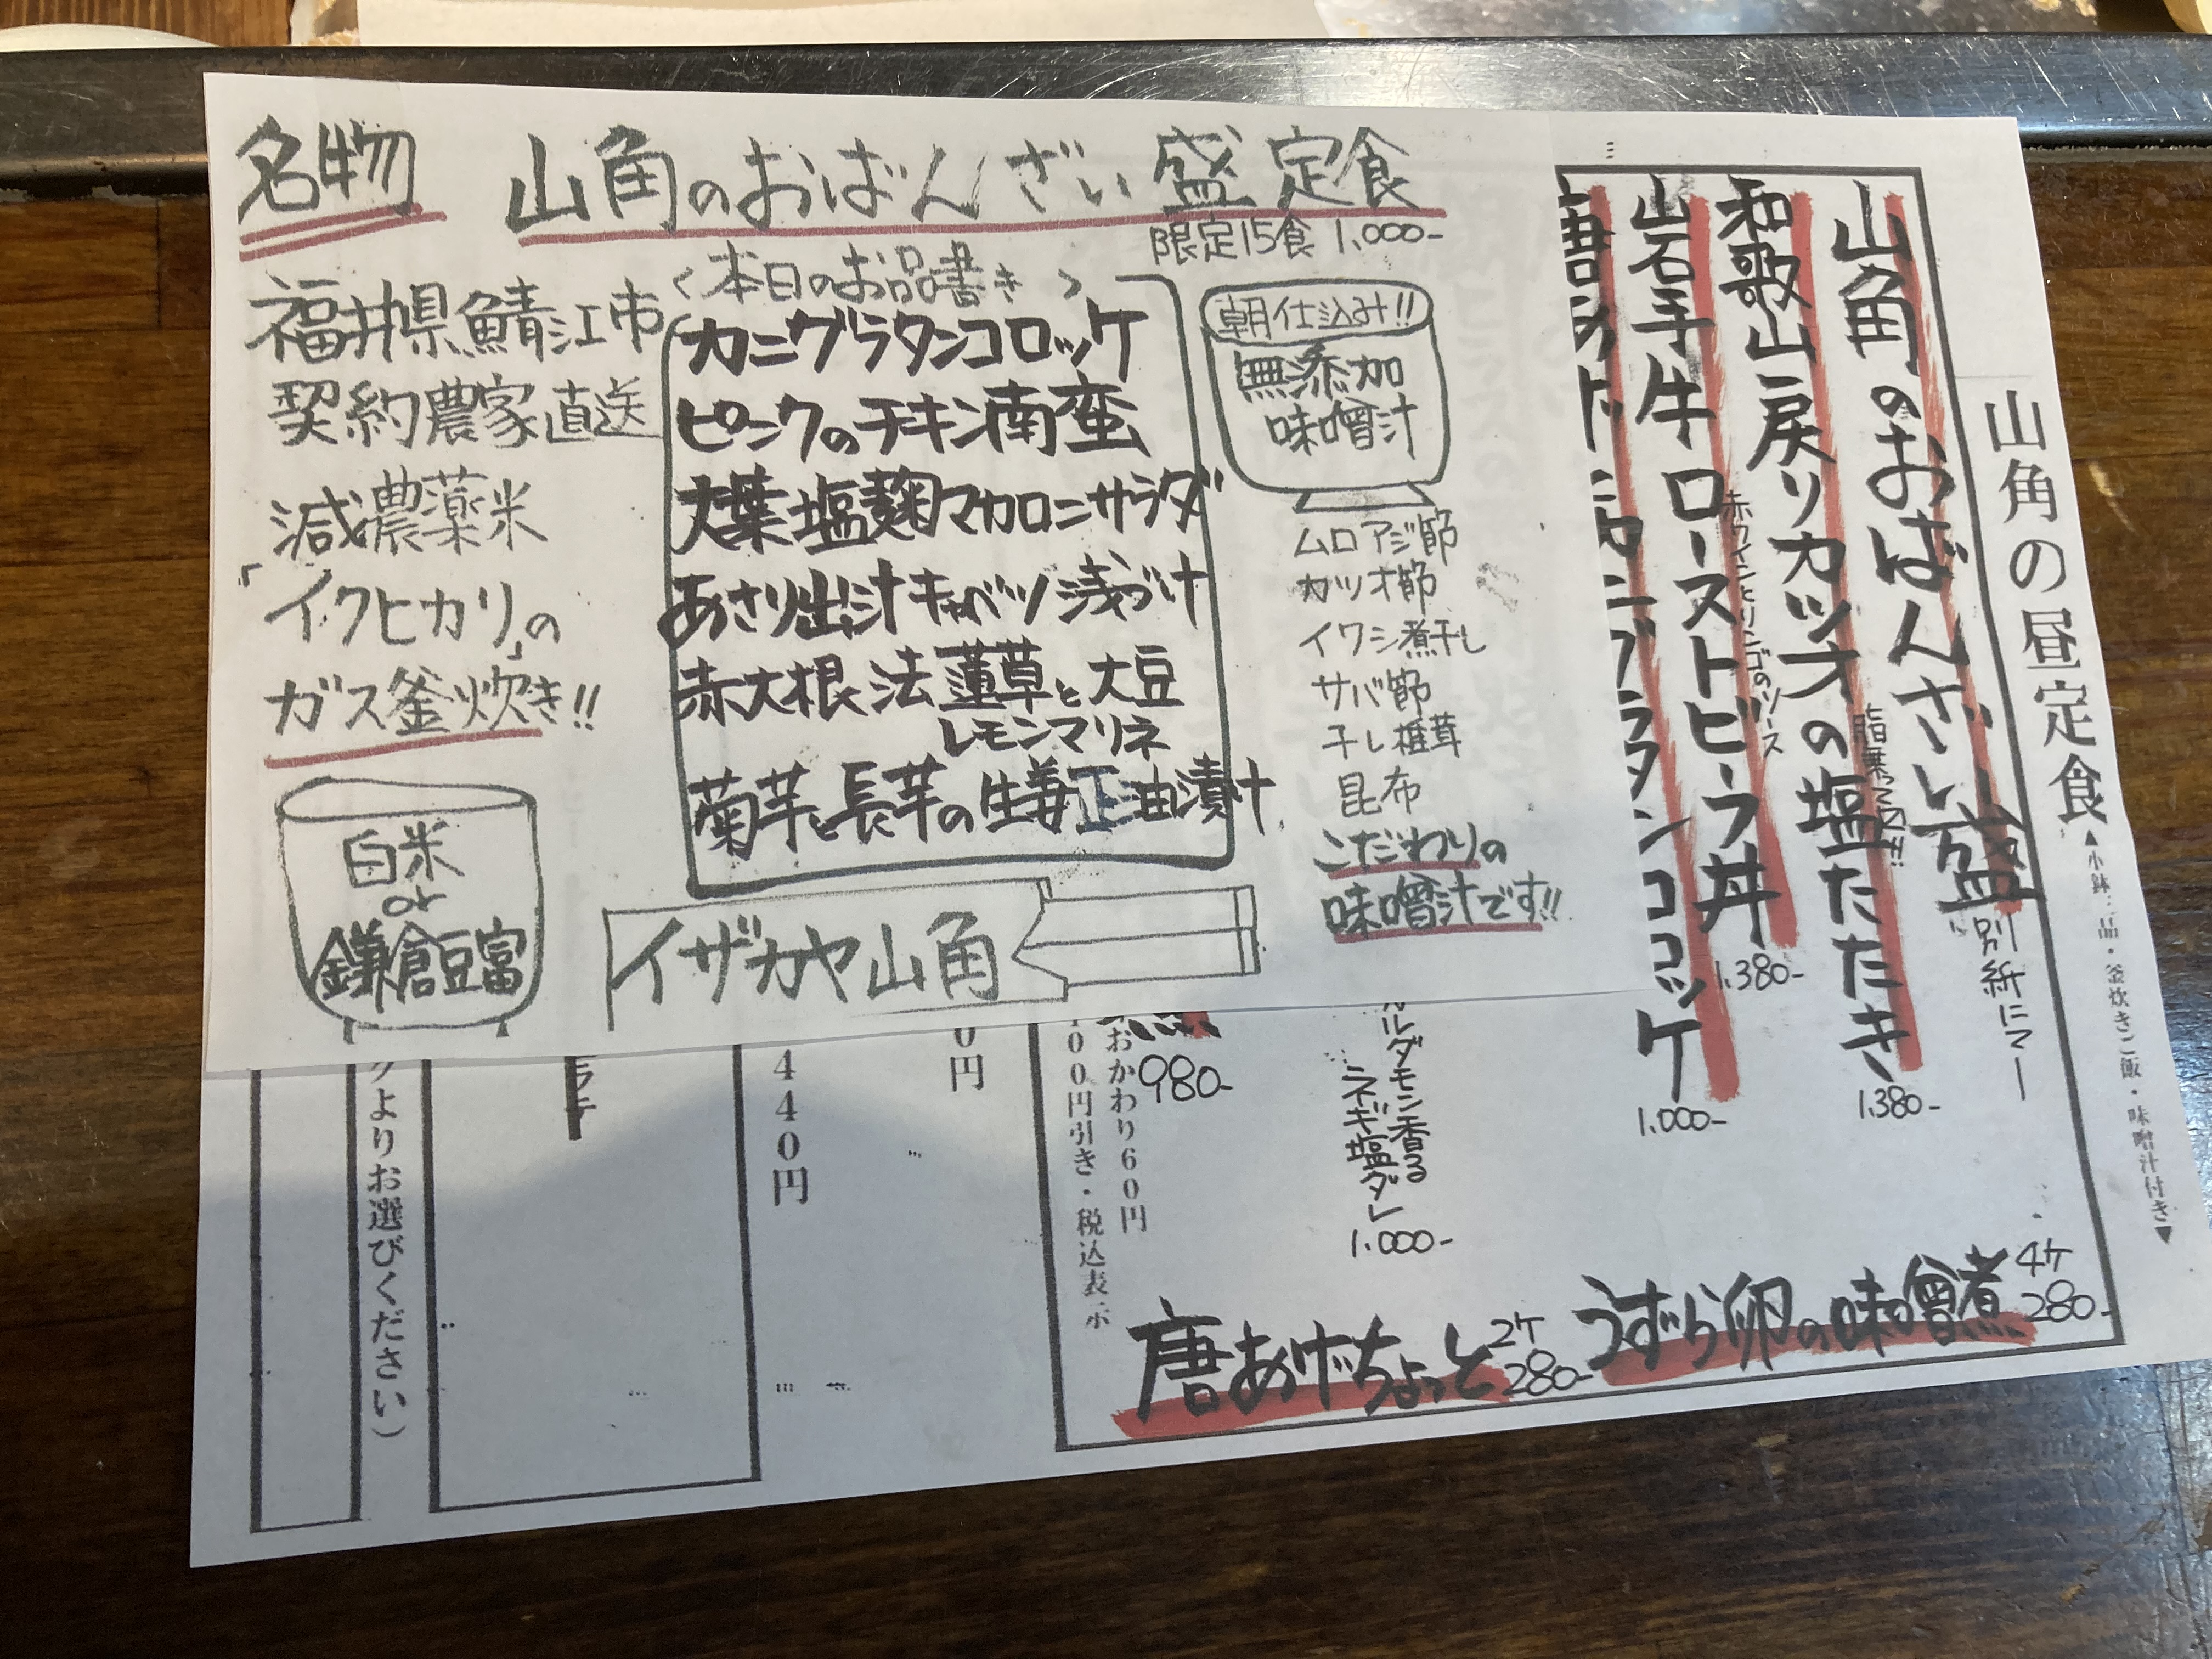 名物
山角のおばんざい盛定食
限定15食 1,000-
福井県鯖江市
契約農家直送
減農薬米
「イクヒカリ」の
ガス釜炊き!!
白米
or
鎌倉豆富
<本日のお品書き>
カニグラタンコロッケ
ピンクのチキン南蛮
大葉塩麹マカロニサラダ
あさり出汁キャベツ浅づけ
赤大根と法蓮草と大豆
レモンマリネ
菊芋と長芋の生姜正油漬け
イザカヤ山角
朝仕込み!!
無添加
味噌汁
ムロアジ節
カツオ節
イワシ煮干し
サバ節
干し椎茸
昆布
こだわりの
味噌汁です!!
山角の昼定食
▲小鉢二品・釜炊きご飯・味噌汁付き▼
山角のおばんざい盛
別紙にマー
和歌山戻りカツオの塩たたき
脂乗ってマス!!
1,380-
岩手牛ローストビーフ丼
赤ワインとリンゴのソース
1,380-
ニグラタンコロッケ
1,000-
カルダモン香る
ネギ塩ダレ
1,000-
980-
うずら卵の味噌煮
4ケ
280-
唐あげちょっと
2ケ
280-
おかわり60円
100円引き・税込表示
0円
440円
よりお選びください）